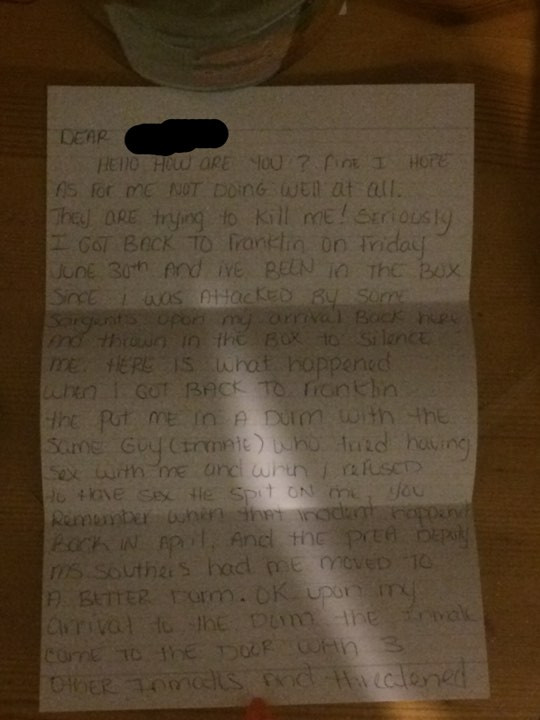 DEAR
HELLO HOW ARE YOU? fine I HOPE
AS for ME NOT DOING WELL at all.
They ARE trying to kill ME! Seriously
I GOT BACK TO Franklin on Friday
JUNE 30th And I'VE BEEN in THE BOX
SINCE I was ATTACKED BY some
Sargents upon my arrival Back here
and thrown in the BOX to SILENCE
ME. HERE IS what happened
when I GOT BACK TO Franklin
the Put ME in A Dorm with the
Same Guy (Inmate) who tried having
Sex with me and when I refused
to HAVE sex He spit ON me, You
Remember when that incident happend
Back IN April, And the PREA Deputy
MS. Southers had ME MOVED TO
A BETTER Dorm. OK upon my
arrival to the Dorm the Inmate
came TO the DOOR with 3
OTHER Inmates And threatened